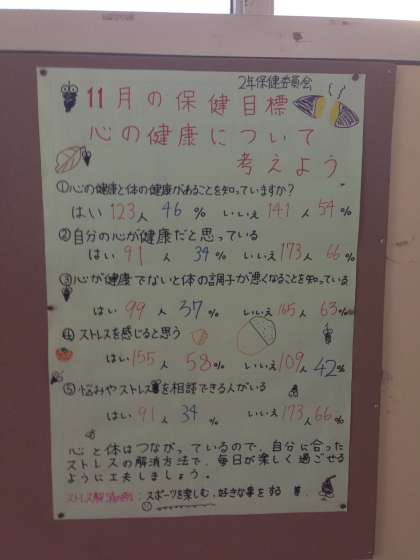 2年保健委員会
11月の保健目標
心の健康について
考えよう
①心の健康と体の健康があることを知っていますか?
はい 123人 46% いいえ 141人 54%
②自分の心が健康だと思っている
はい 91人 34% いいえ 173人 66%
③心が健康でないと体の調子が悪くなることを知っている
はい 99人 37% いいえ 165人 63%
④ストレスを感じると思う
はい 155人 58% いいえ 109人 42%
⑤悩みやストレスを相談できる人がいる
はい 91人 34% いいえ 173人 66%
心と体はつながっているので、自分に合った
ストレスの解消方法で、毎日が楽しく過ごせる
ように工夫しましょう。
ストレス解消の例:スポーツを楽しむ、好きな事をする